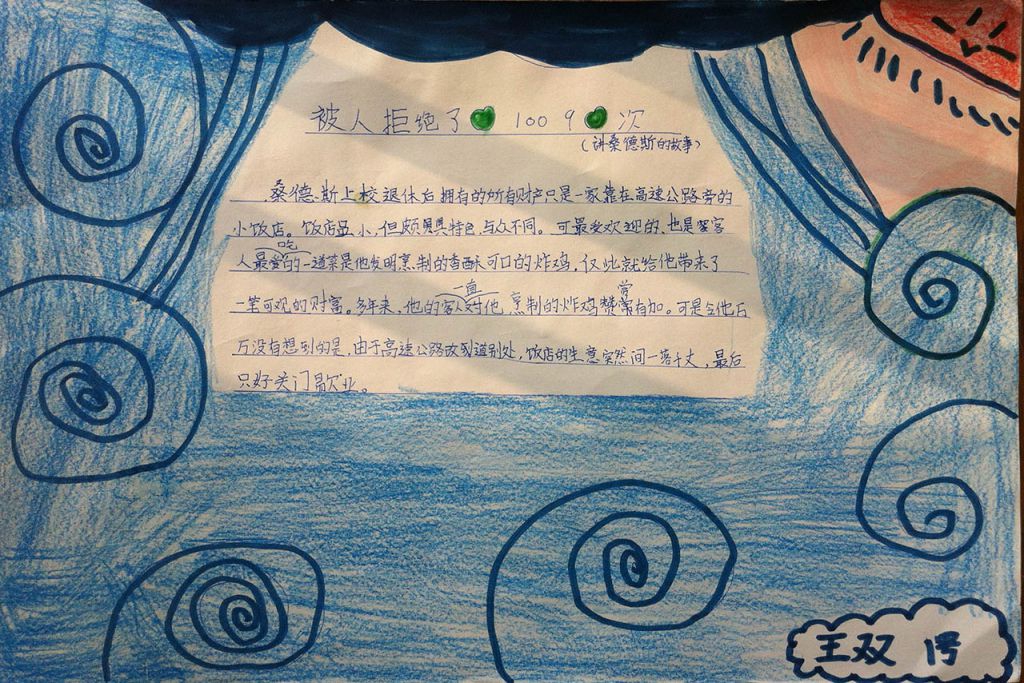 被人拒绝了 1009 次
(讲桑德斯的故事)
桑德斯上校退休后拥有的所有财产只是一家靠在高速公路旁的
小饭店。饭店虽小,但颇具特色,与众不同。可最受欢迎的,也是客
人最爱吃的一道菜是他发明烹制的香酥可口的炸鸡,仅此就给他带来了
一笔可观的财富。多年来,他的客人一直对他烹制的炸鸡赞赏有加。可是令他万
万没有想到的是,由于高速公路改到道别处,饭店的生意突然间一落千丈,最后
只好关门歇业。
王双